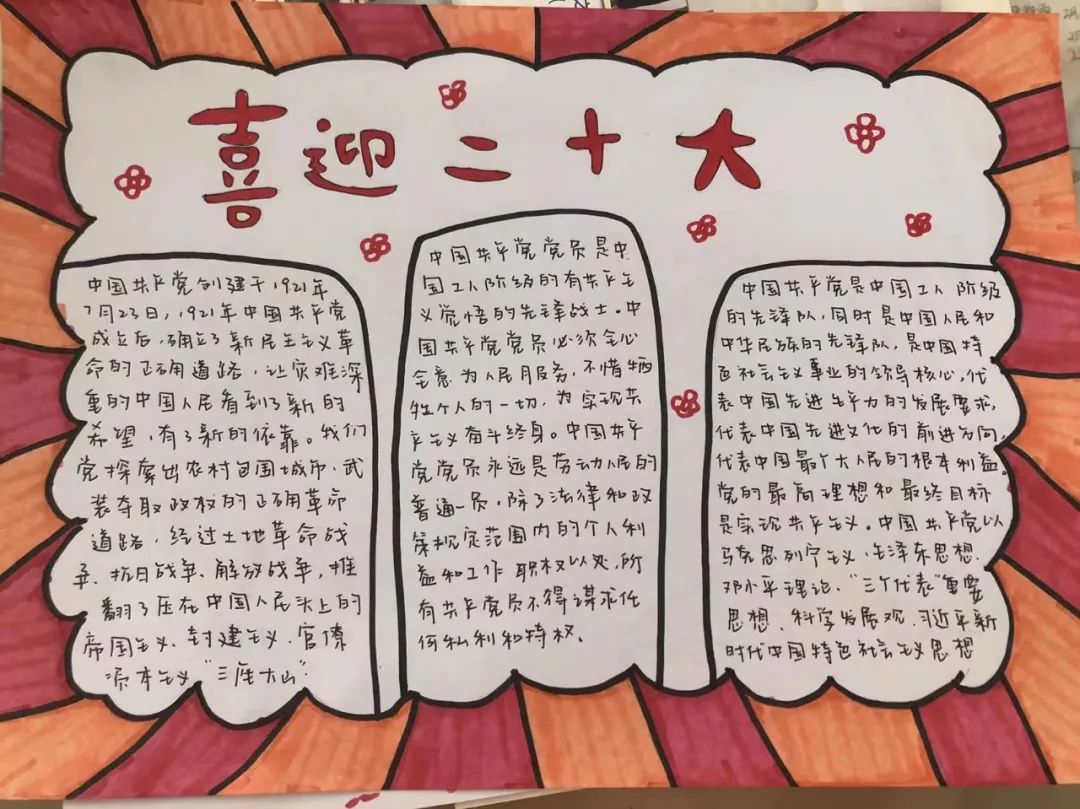 喜迎二十大
中国共产党创建于1921年
7月23日，1921年中国共产党
成立后，确立了新民主主义革
命的正确道路，让灾难深
重的中国人民看到了新的
希望，有了新的依靠。我们
党探索出农村包围城市、武
装夺取政权的正确革命
道路，经过土地革命战
争、抗日战争、解放战争，推
翻了压在中国人民头上的
帝国主义、封建主义、官僚
资本主义"三座大山"
中国共产党党员是中
国工人阶级的有共产主
义觉悟的先锋战士。中
国共产党党员必须全心
全意为人民服务，不惜牺
牲个人的一切，为实现共
产主义奋斗终身。中国共产
党党员永远是劳动人民的
普通一员，除了法律和政
策规定范围内的个人利
益和工作职权以外，所
有共产党员不得谋求任
何私利和特权。
中国共产党是中国工人阶级
的先锋队，同时是中国人民和
中华民族的先锋队，是中国特
色社会主义事业的领导核心，代
表中国先进生产力的发展要求，
代表中国先进文化的前进方向，
代表中国最广大人民的根本利益。
党的最高理想和最终目标
是实现共产主义。中国共产党以
马克思列宁主义、毛泽东思想、
邓小平理论、"三个代表"重要
思想、科学发展观、习近平新
时代中国特色社会主义思想